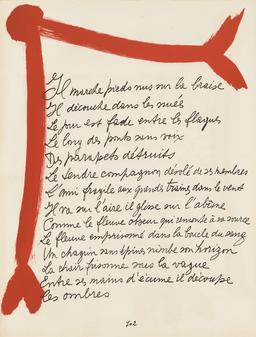 Il marche pieds nus sur la braise
Il découche dans les nuées
Le jour est fade entre les flaques
Le long des ponts sans voix
Des parapets détruits
Le tendre compagnon dévolé de ses membres
L'ami fragile aux grands trains dans le vent
Il va sur l'aire il glisse sur l'abîme
Comme le fleuve obscur qui remonte à sa source
Le fleuve emprisonné dans la boucle du sang
Un chagrin sans épines nimbe son horizon
La chair frissonne sous la vague
Entre ses mains d'écume il découpe
les ombres
102